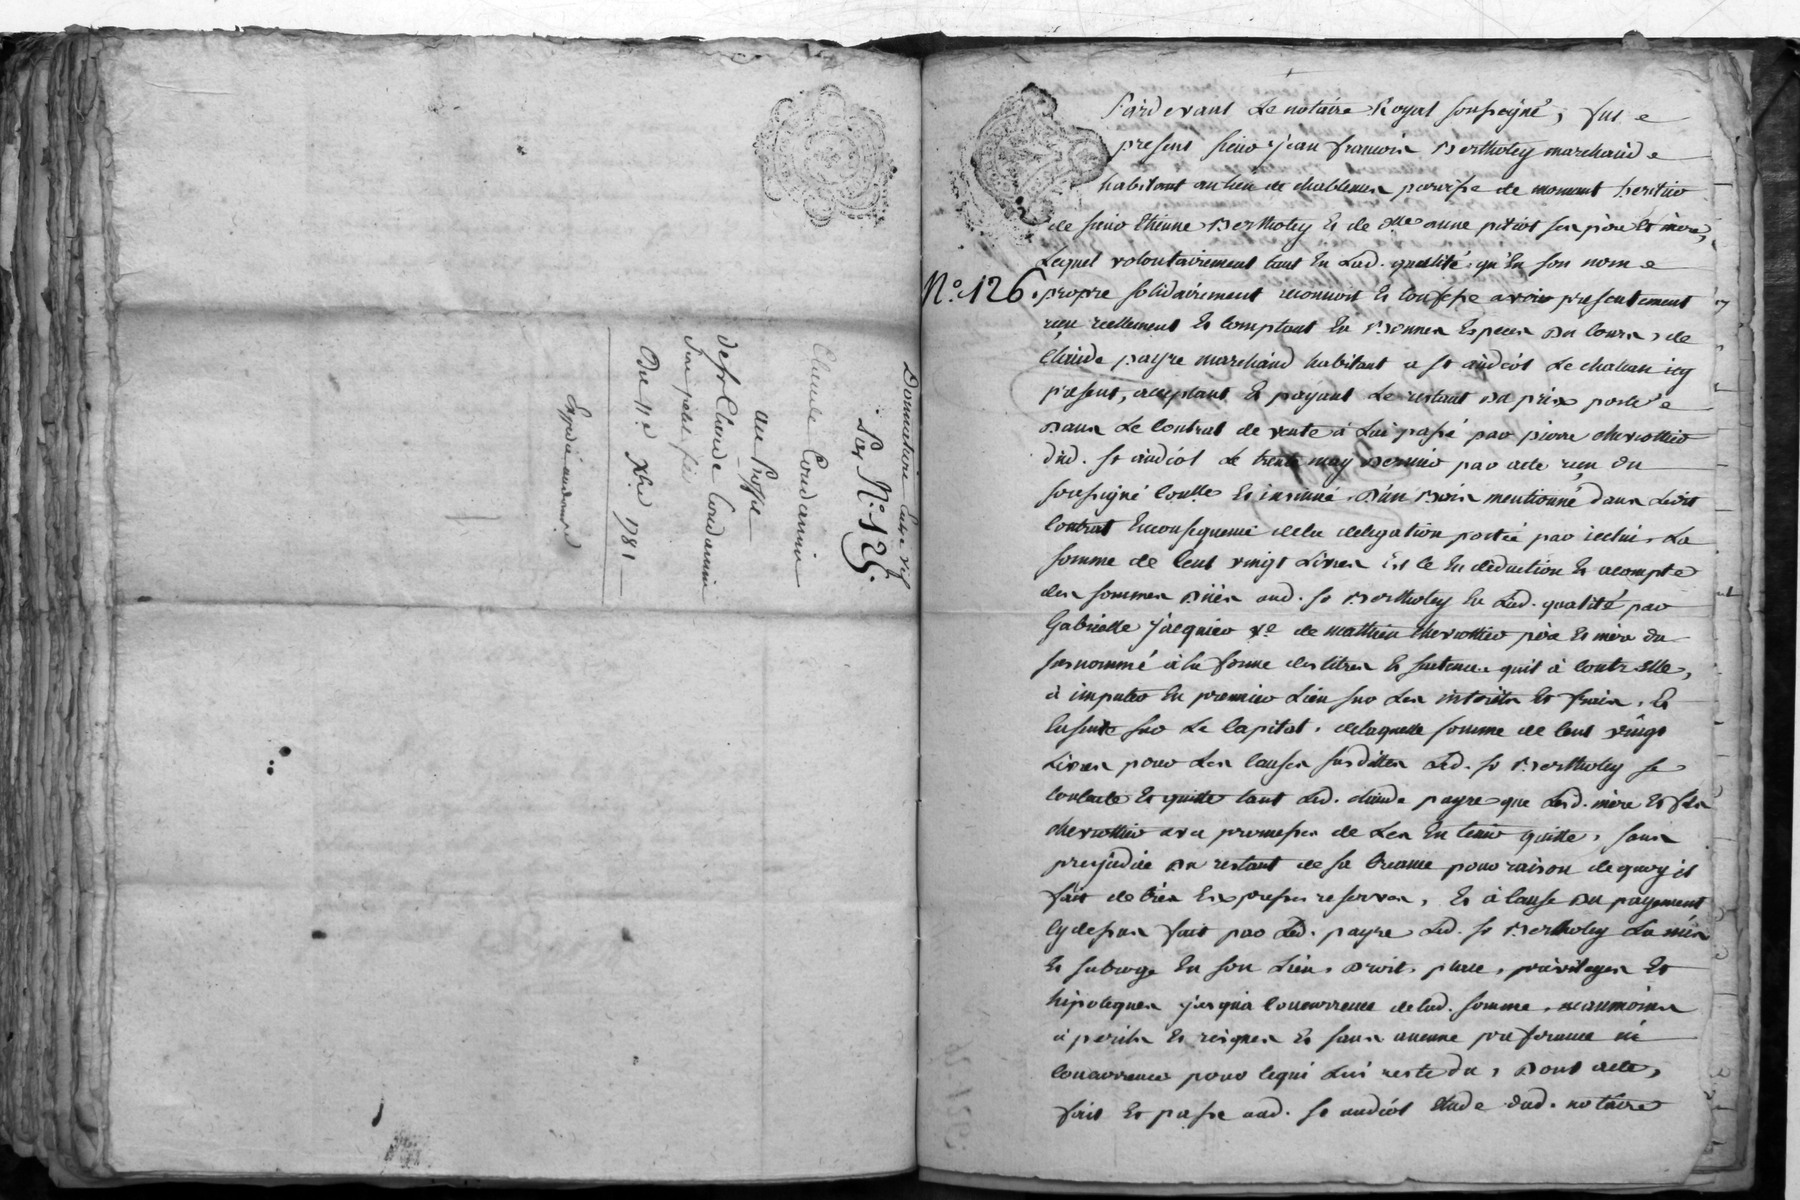 Donnataire Entre vif
Par N.° 125.
Claude Condamin
au Proffit
de sr Claude Condamin
son petit fils
Du 11.e Xbre 1781
Expedié aud.
N.° 126.
Pardevant Le notaire Royal soussigné, fut
present sieur jean francois Bertholey marchand
habitant au lieu de chablenas paroisse de mornant heritier
de sieur Etienne Bertholey Et de dlle anne pitiot ses père Et mère,
Lequel volontairement tant En Lad. qualité qu'En son nom
propre solidairement reconnoit Et Confesse avoir presentement
reçu reellement Et Comptant En Bonnes Especes Du Cours, de
Claude payre marchand habitant a st andéol Le chateau icy
present, acceptant Et payant Le restant Du prix porté
Dans Le Contrat de vente à Lui passé par pierre chevrottier
dud. st andéol Le trente may Dernier par acte reçu du
soussigné Conllé Et insinué, D'un Bois mentionné dans Ledit
Contrat Enconsequence dela delegation portée par icelui, La
somme de Cent vingt Livres Et Ce En déduction Et acompte
des sommes Dües aud. sr Bertholey En Lad. qualité par
Gabrielle jacquier ve. de mathieu chevrottier père Et mère du
susnommé à la forme des titres Et sentences quil à Contr'Elle,
à imputer En premier Lieu sur Les intérêts Et frais, Et
Ensuite sur Le Capital, delaquelle somme de Cent vingt
Livres pour Les Causes susdittes Led. sr Bertholey se
Contente Et quitte tant Led. claude payre que Lesd. mère Et fils
chevrottier avec promesses de Les En tenir quitte, sans
prejudice Du restant de sa Creance pour raison dequoy il
fait de très Expresses reserves, Et à Cause Du payement
Cydessus fait par Led. payre Led. sr Bertholey La mis
Et subrogé En son Lieu, Droit, place, privileges Et
hipoteques jusqu'à Concurrence delad. somme, neanmoins
à perils Et risques Et sans aucune préferance ni
Concurrence pour Cequi Lui reste du, Dont acte,
fait Et passé aud. st andéol Etude dud. notaire